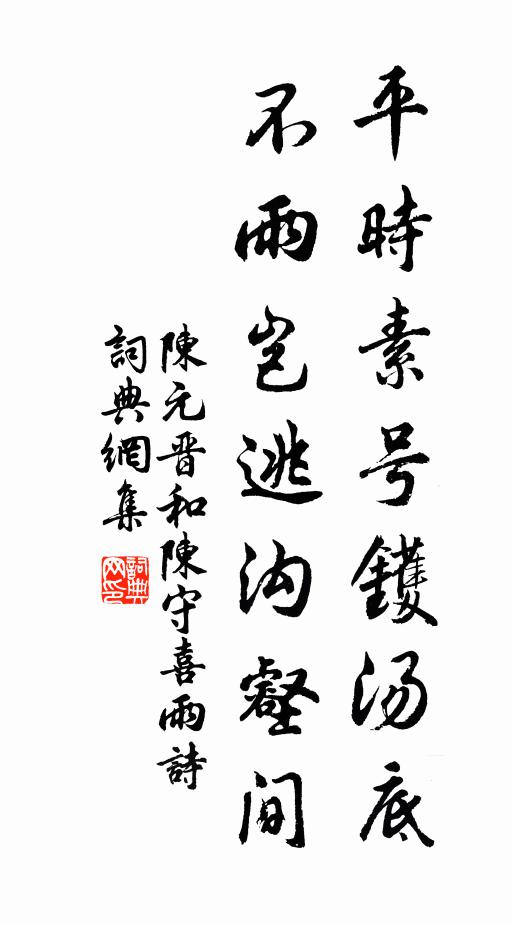 平時素号鑊汤底
不雨岂逃沟壑间
陳元晋和陳守喜雨詩
詞典網集
詞典网印